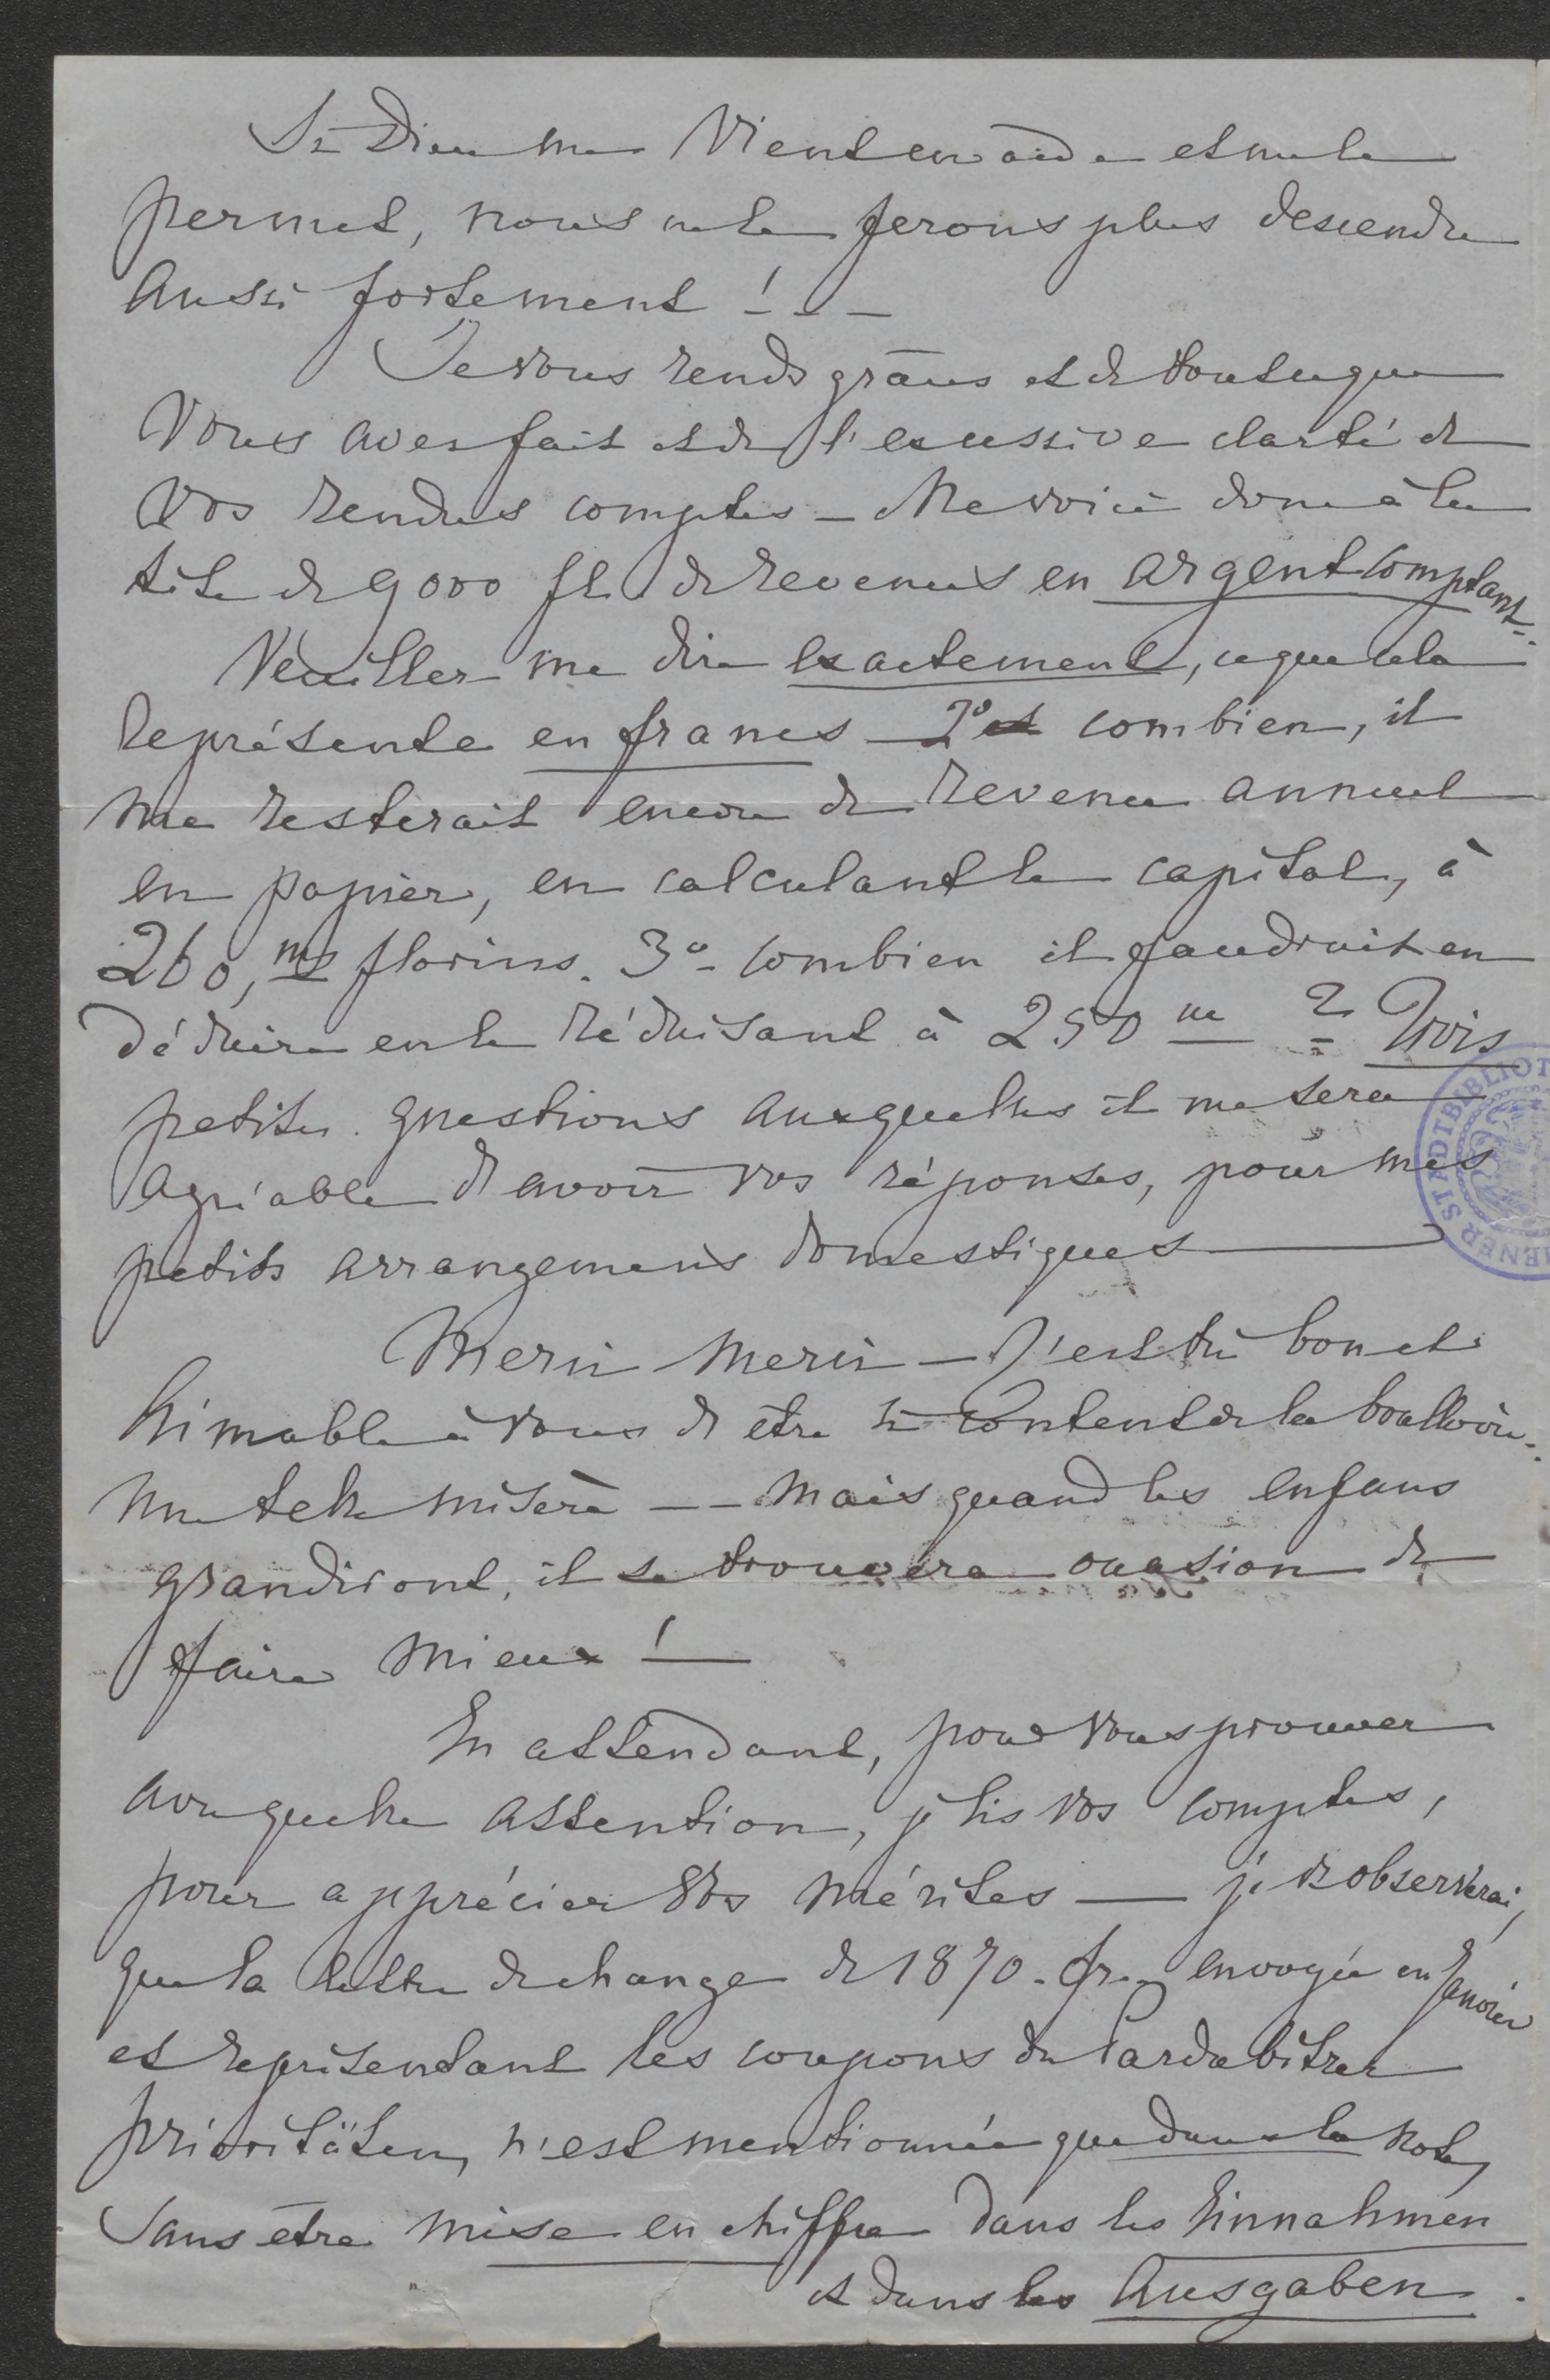 Si Dieu me vient en aide et me le
permet, nous ne le ferons plus descendre
aussi fortement ! _ _
Je vous rends grâces et de tout ce que
vous avez fait et de l'excessive clarté de
vos rendus comptes _ Me voici donc à la
tête de 9000 fl. de revenus en argent comptant _
Veuillez me dire exactement, ce que cela
représente en francs _ 2° combien, il
me resterait encore de revenu annuel
en papier, en calculant le capital, à
260, m florins. 3° combien il faudrait en
déduire en le réduisant à 250 m ? Trois
petites questions auxquelles il me sera
agréable d'avoir vos réponses, pour mes
petits arrangemens domestiques _
Merci Merci _ C'est très bon et
aimable à vous d'être si content de la
une telle misère _ _ Mais quand les enfans
grandiront, il se trouvera occasion de
faire mieux ! _
En attendant, pour vous prouver
avec quelle attention, je lis vos comptes,
pour apprécier vos mérites _ je observerai,
que la lettre de change de 1870. fr. envoyée en Janvier
et représentant les coupons du Pardubitzer
prioritäten, n'est mentionnée que dans la note,
sans être mise en chiffre dans les Einnahmen
et dans les Ausgaben.
WIENER STADTBIBLIOT